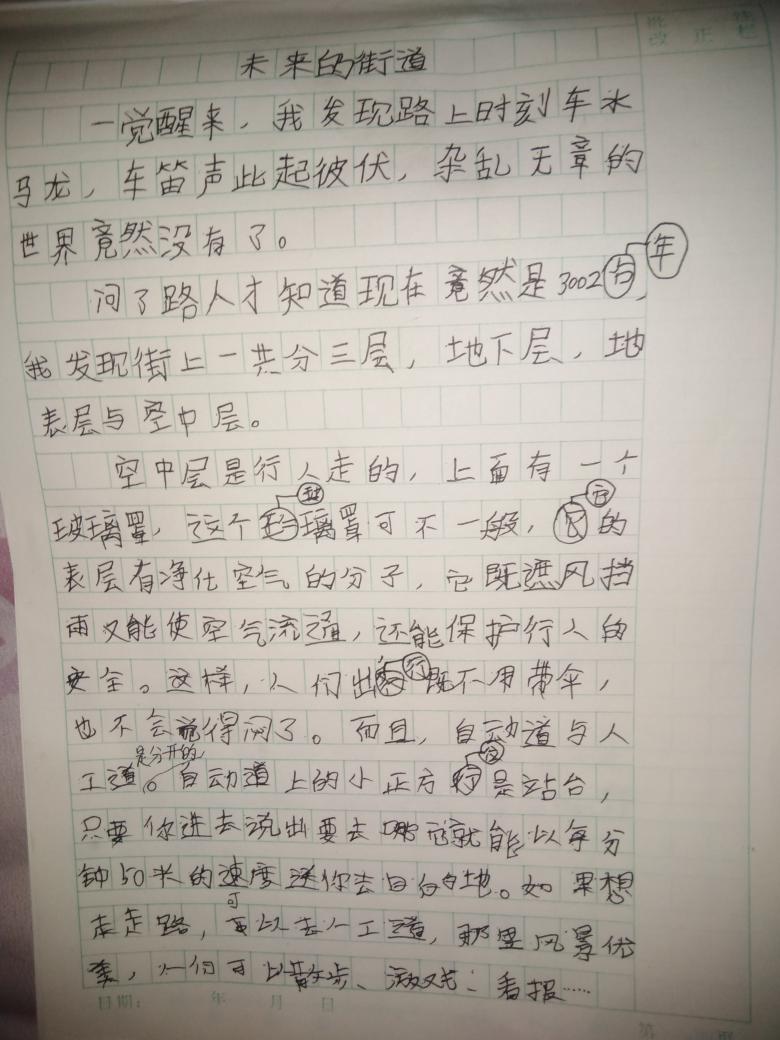 批 注
改 正 栏
未来的街道
一觉醒来，我发现路上时刻车水
马龙，车笛声此起彼伏，杂乱无章的
世界竟然没有了。
问了路人才知道现在竟然是3002年，
我发现街上一共分三层，地下层，地
表层与空中层。
空中层是行人走的，上面有一个
玻璃罩，这个玻璃罩可不一般，它的
表层有净化空气的分子，它既遮风挡
雨又能使空气流通，还能保护行人的
安全。这样，人们出行既不用带伞，
也不会觉得闷了。而且，自动道与人
工道是分开的。自动道上的小正方形是站台，
只要你进去说出要去哪就能以每分
钟50米的速度送你去目的地。如果想
走走路，可以去人工道，那里风景优
美，人们可以散步、游戏、看报……
日期： 年 月 日
第